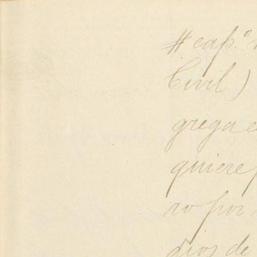 # cap.º
Civil)
grega e
quiere
ro por
dios de